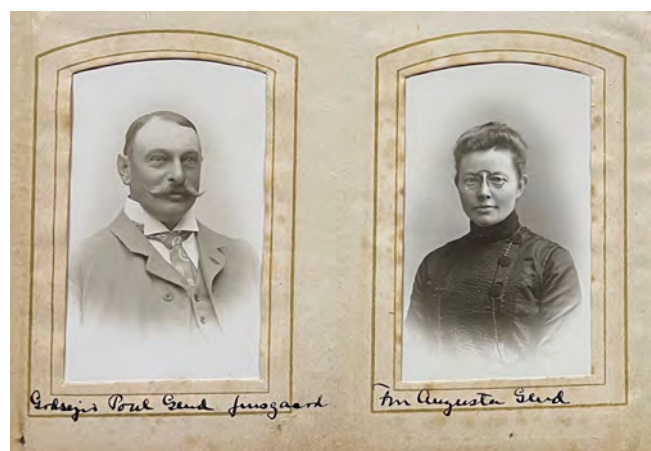 Godsejer Poul Glud Junsgaard
Fru Augusta Glud